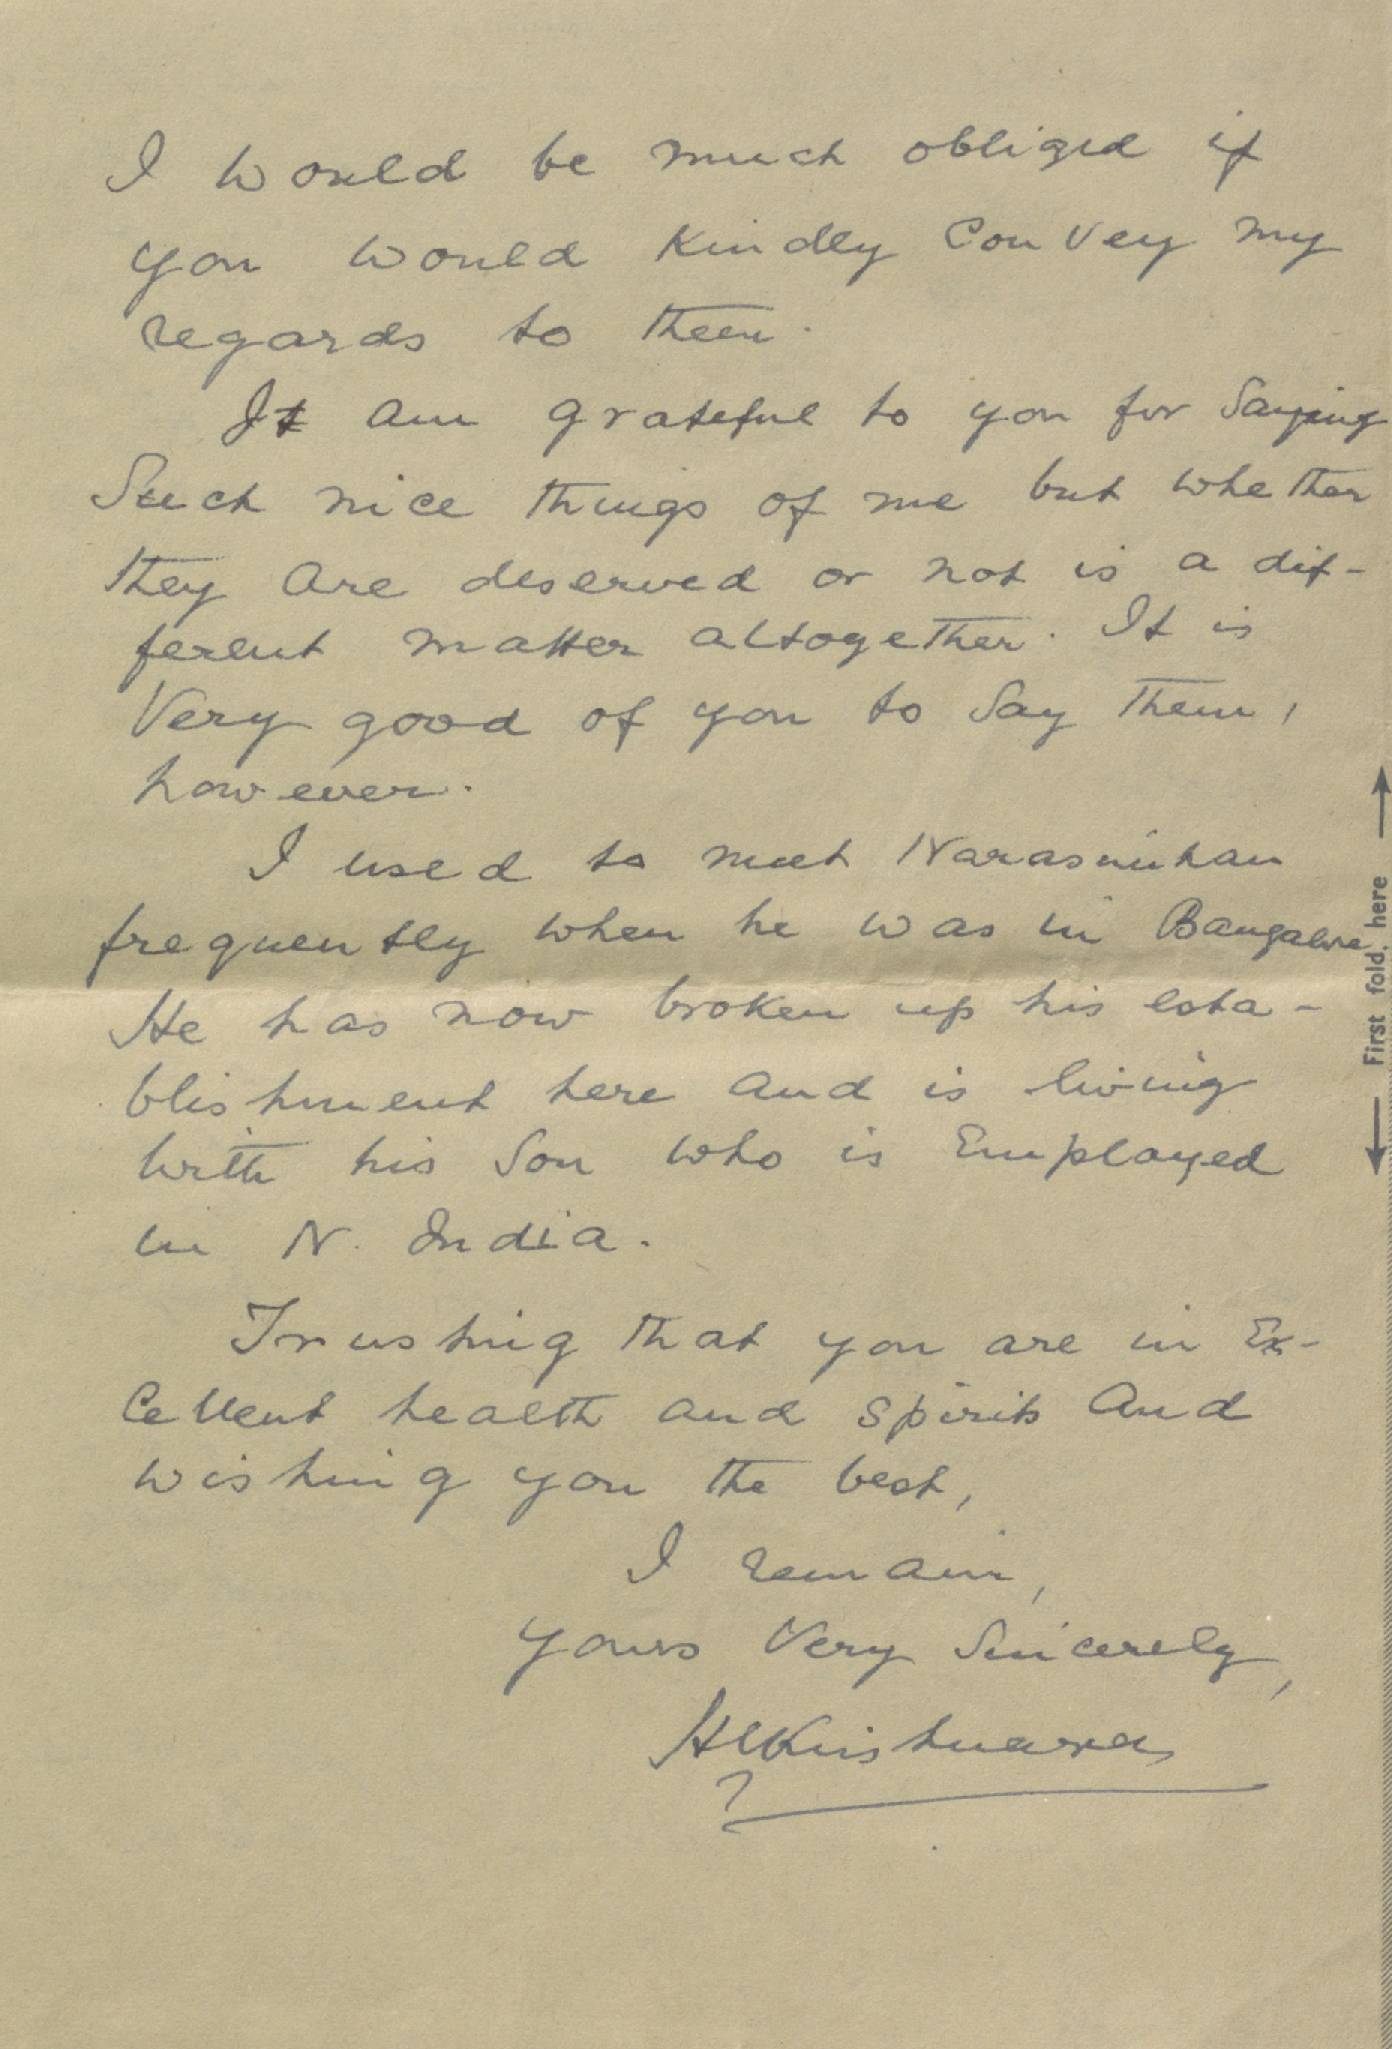 I would be much obliged if
you would kindly convey my
regards to them.
I am grateful to you for saying
Such nice things of me but whether
they are deserved or not is a dif-
ferent matter altogether. It is
Very good of you to say them,
however.
I used to meet Narasimhan
frequently when he was in Bangalore
He has now broken up his esta-
blishment here and is living
with his son who is Employed
in N. India.
Trusting that you are in Ex-
cellent health and spirits and
wishing you the best,
I remain,
yours Very Sincerely,
First fold here